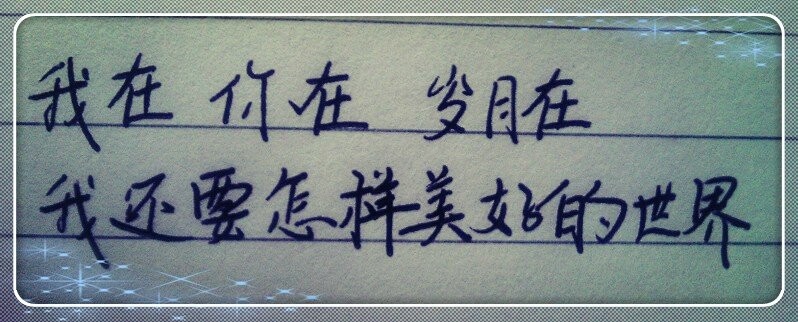 我在 你在 岁月在
我还要怎样美好的世界